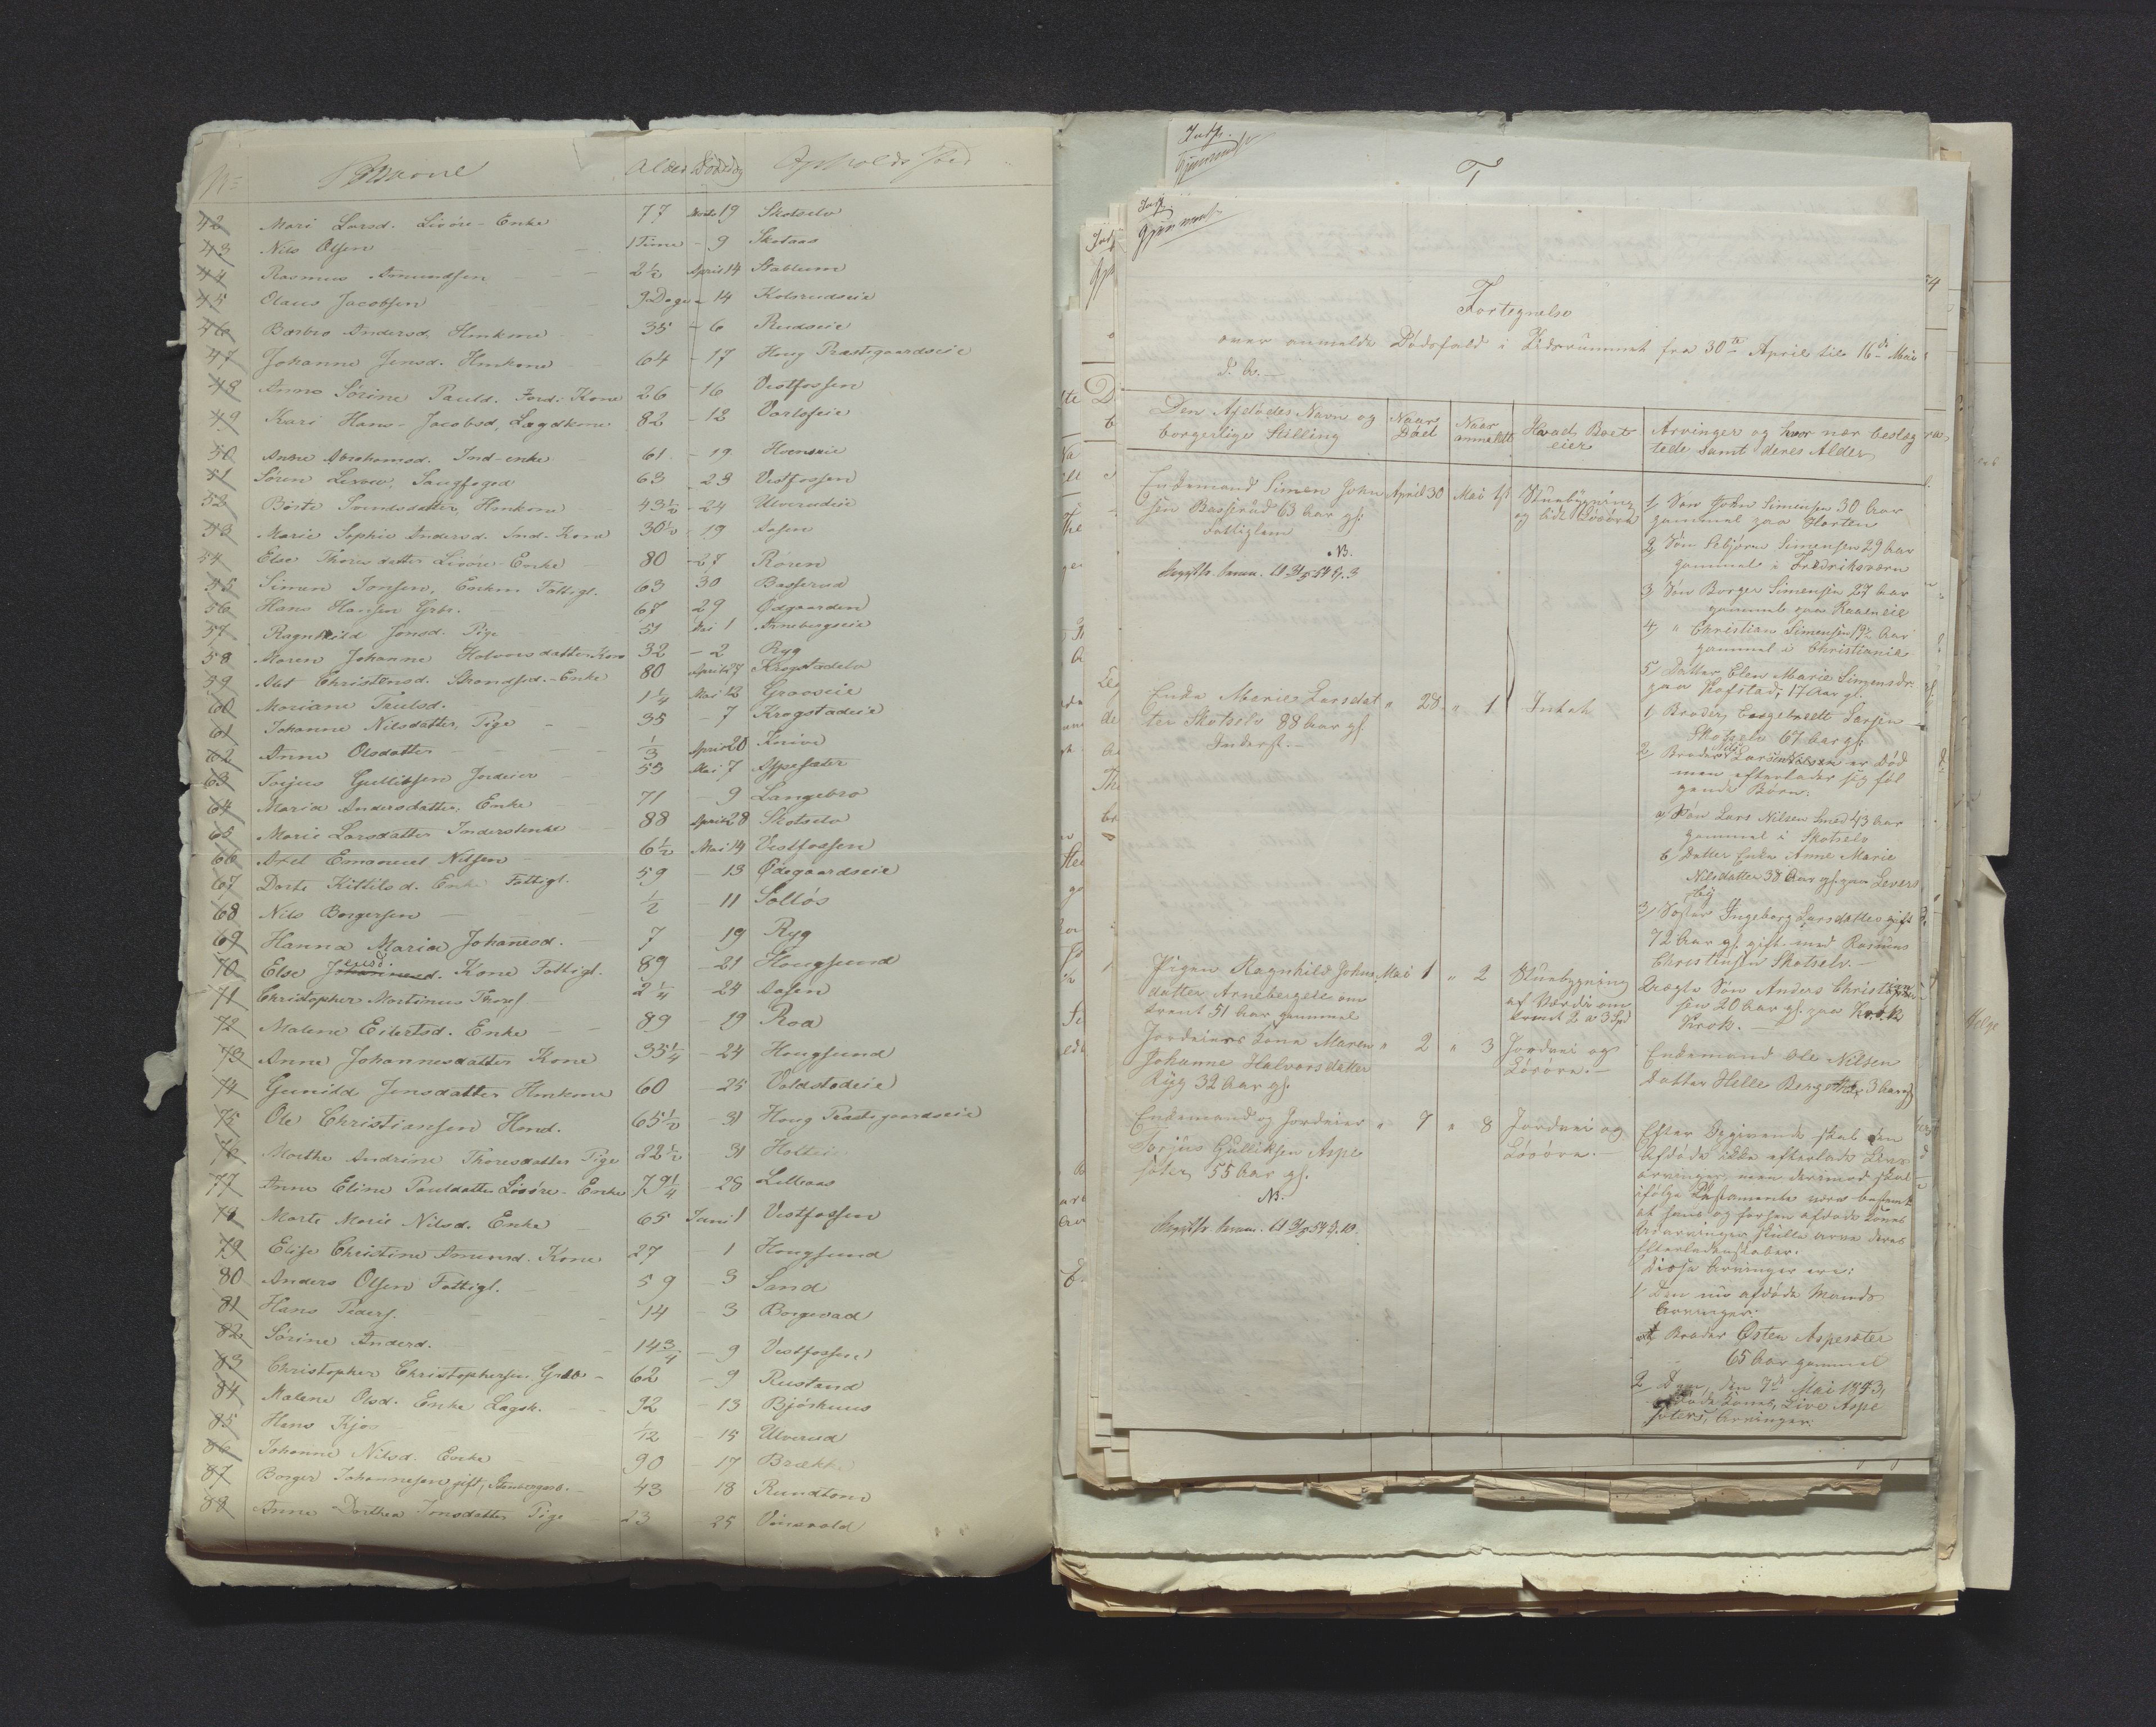 No Personer Alder Dödsdag Opholds Sted
42 Mari Larsd. Livöre-Enke 77 Marts 19 Skotselv
43 Nils Olsen 1 Time - 9 Skotaas
44 Rasmus Amundsen 2½ April 14 Stablum
45 Olaus Jacobsen 9 Dage - 14 Kolsrudeie
46 Barbro Andersd. Hmkone 35 - 6 Rudseie
47 Johanne Jensd. Hmkone 64 - 17 Houg Præstegaardseie
48 Anne Sörine Pauld. Jord. Kone 26 - 16 Vestfossen
49 Kari Hans-Jacobsd. Lægdkone 82 - 12 Varloseie
50 Anne Abrahamsd. Ind-enke 61 - 19 Hoenseie
51 Sören Livow, Saugfoged 63 - 23 Vestfossen
52 Börte Svendsdatter, Hmkone 43½ - 24 Ulverudeie
53 Marie Sophie Andersd. Ind. Kone 30½ - 19 Aasen
54 Else Thoresdatter Livöre-Enke 80 - 27 Roren
55 Simen Jonsen, Enkem. Fattigl. 63 30 Basserud
56 Hans Hansen Grbr. 67 29 Ødgaarden
57 Ragnhild Jonsd. Pige 51 Mai 1 Arnebergeie
58 Maren Johanne Halvorsdatter Kone 32 - 2 Ryg
59 Alet Christensd. Strandsd.-Enke 80 April 27 Krogstadelv
60 Mariane Trulsd. 1¼ Mai 3 Grooseie
61 Johanne Nilsdatter, Pige 35 - 7 Krogstadeie
62 Anne Olsdatter ⅓ April 20 Knive
63 Torjus Gulliksen Jordeier 55 Mai 7 Aspesæter
64 Maria Andersdatter, Enke 71 - 9 Langebro
65 Marie Larsdatter Inderstenke 88 April 28 Skotselv
66 Axel Emanuel Nilsen 6½ Mai 14 Vestfossen
67 Dorte Kittilsd. Enke Fattigl. 59 - 13 Ødegaardseie
68 Nils Borgersen ½ - 11 Solløs
69 Hanna Maria Johanesd. 7 - 19 Ryg
70 Else Johannesd. Kone Fattigl. 89 - 21 Hougsund
71 Christopher Martinus Thores. 2¼ - 24 Aasen
72 Malene Eilertsd. Enke 89 - 19 Roa
73 Anne Johannesdatter Kone 35¼ - 24 Hougsund
74 Gunild Jensdatter Hmkone 60 - 25 Voldstadeie
75 Ole Christiansen Hmd. 65½ - 31 Houg Præstegaardseie
76 Marthe Andrine Thoresdatter Pige 22½ - 31 Holteie
77 Anne Eline Paulsdatter Livöre-Enke 79¼ - 28 Lilleaas
78 Marte Marie Nilsd. Enke 65 Juni 1 Vestfossen
79 Elise Christine Amund. Kone 27 1 Hougsund
80 Anders Olsen Fattigl. 59 - 3 Sand
81 Hans Peders. 14 - 3 Borgevad
82 Sörine Anderd. 14¾ - 9 Vestfossen
83 Christopher Christophersen Grbr - 62 - 9 Rustand
84 Malene Olsd. Enke Lægdk. 92 - 13 Bjørkeus
85 Hans Kjos 1/12 - 15 Ulverud
86 Johanne Nilsd. Enke 90 - 17 Brække
87 Borger Johannesen gift, Stenbergs. 43 18 Rundtom
88 Anne Dorthea Jonsdatter Pige 23 25 Vinsvold
T
Fortegnelse
over anmeldte Dödsfald i Tidsrummet fra 30te April til 16de Mai
d. A.
Den Afdödes Navn og borgerlige Stilling
Naar Död
Naar anmeldt
Hvad Boet eier
Arvinger og hvor nær beslægtede samt deres Alder
Enkemand Simen John
sen Basserud 63 Aar gl.
Fattiglem
NB.
April 30 Mai 1
Stuebygning
og lidt Lösöre
1, Sön John Simensen 30 Aar
gammel paa Horten
2, Sön Asbjörn Simensen 29 Aar
gammel i Fredriksværn
3, Sön Borger Simensen 27 Aar
gammel paa
4, " Christian Simensen 19½ Aar
gammel i Christiania
5, Datter Elen Marie Simensdr.
paa Hofstad, 17 Aar gl.
Enke Marie Larsdat
ter Skotselv 88 Aar gl.
Inderst.
" 28 " 1 Intet
1, Broder, Engebrett Larsen
Skotselv 67 Aar gl.
2, Broder Nils Larsen er Död
men efterlader sig föl
gende Börn:
a, Sön Lars Nilsen Smed 43 Aar
gammel i Skotselv
b, Datter Enke Anne Marie
Nilsdatter 38 Aar gl. paa Levers
by
3, Söster Ingeborg Larsdatter gift
72 Aar gl. gift med Rasmus
Christensen Skotselv.
Pigen Ragnhild Johns
datter Arnebergeie om
trent 51 Aar gammel
Mai 1 " 2
Stuebygning
af Værdi om
trent 2 a 3 Spd
Uægte Sön Anders Christian
sen 20 Aar gl. paa Krok
Krok.
Jordeiers Kone Maren
Johanne Halvorsdatter
Ryg 32 Aar gl.
" 2 " 3
Jordvei og
Lösöre.
Enkemand Ole Nilsen
Datter Helle Bergitte, 3 Aar gl
Enkemand og Jordeier
Torjus Gulliksen Aspe
sæter, 55 Aar gl.
NB.
" 7 " 8
Jordvei og
Lösöre.
Efter Opgivende skal den
Afdöde ikke efterlade Livs
arvinger, men derimod skal
ifölge Testamente være bestemt
at hans og forhen afdöde Kones
Udarvinger skulle arve deres
Efterladenskaber.
Disse Arvinger ere:
1, Den nu afdöde Mands
Arvinger:
Broder Østen Aspesæter
65 Aar gammel
2, Den, den 7de Mai 1853,
afdöde Kones, Live Aspe
sæters, Arvinger: